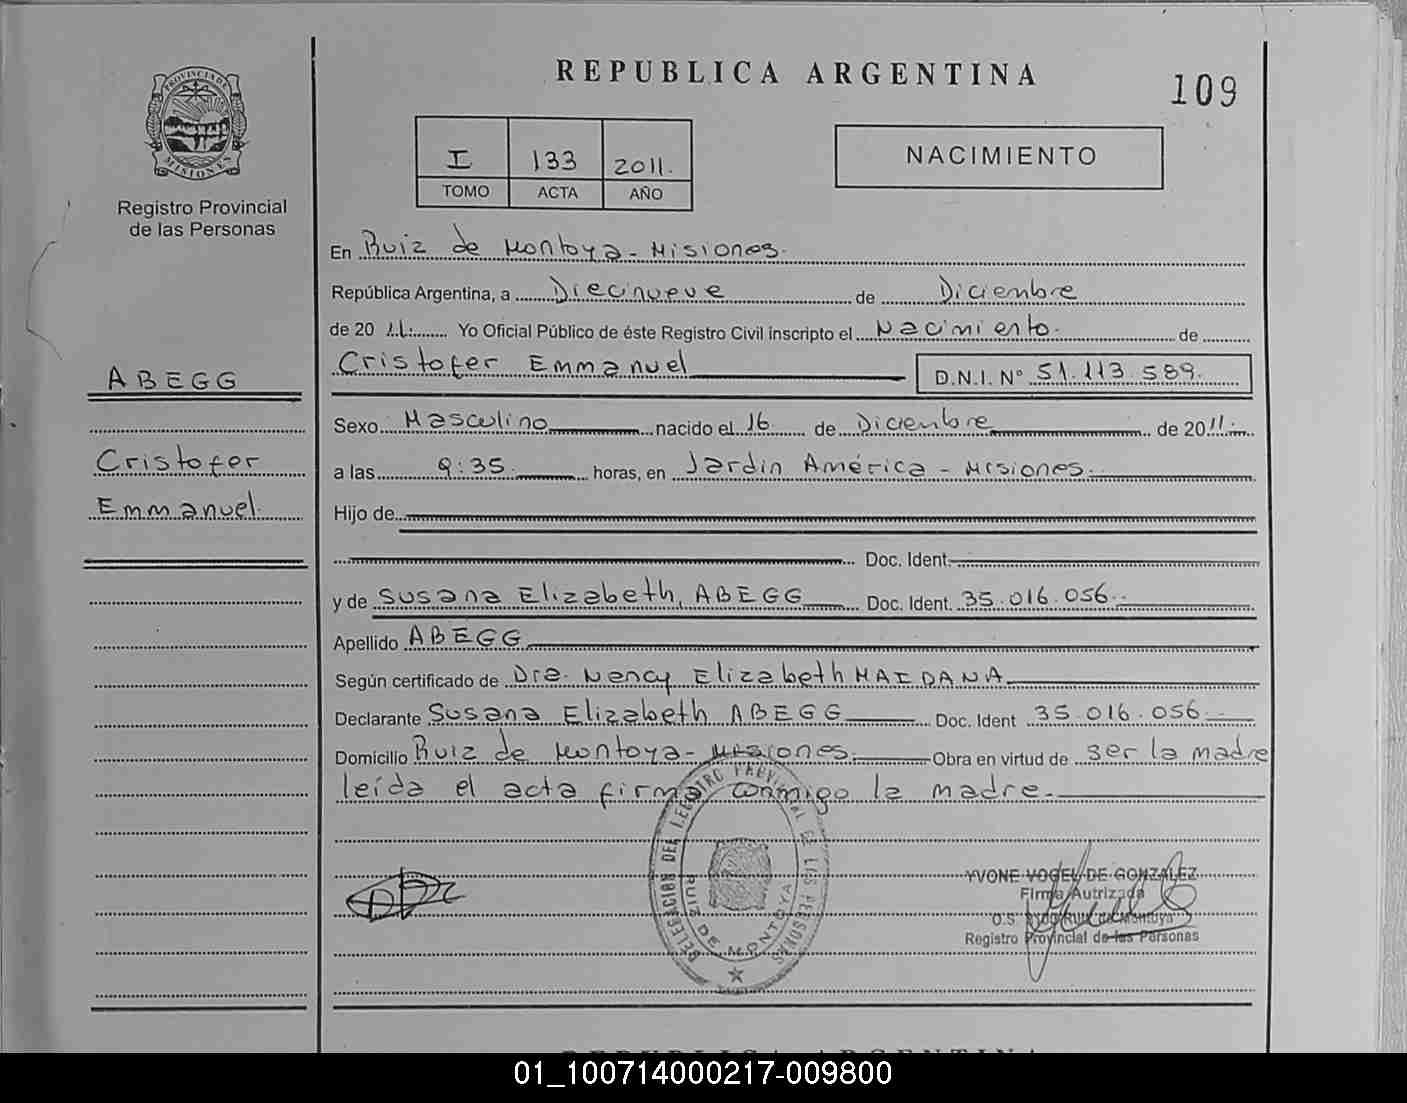 REPUBLICA ARGENTINA
109
PROVINCIA DE
MISIONES
Registro Provincial
de las Personas
I 133 2011.
TOMO ACTA AÑO
NACIMIENTO
En Ruiz de Montoya - Misiones.
República Argentina, a Diecinueve de Diciembre
de 20 11. Yo Oficial Público de éste Registro Civil inscripto el Nacimiento. de
Cristofer Emmanuel D.N.I. N° 51.113.589.
ABEGG
Cristofer
Emmanuel
Sexo Masculino nacido el 16 de Diciembre de 2011.
a las 9:35 horas, en Jardin América - Misiones.
Hijo de
Doc. Ident
y de Susana Elizabeth, ABEGG Doc. Ident. 35.016.056.
Apellido ABEGG
Según certificado de Dra. Nancy Elizabeth MAIDANA
Declarante Susana Elizabeth ABEGG Doc. Ident 35.016.056
Domicilio Ruiz de Montoya - Misiones. Obra en virtud de ser la madre
leída el acta firma conmigo la madre.
DELEGACION DEL REGISTRO PROVINCIAL DE LAS PERSONAS
RUIZ DE MONTOYA
YVONE VOGEL DE GONZALEZ
Firma Autrizada
O.S. Ruiz de Montoya
Registro Provincial de las Personas
REPUBLICA ARGENTINA
01_100714000217-009800